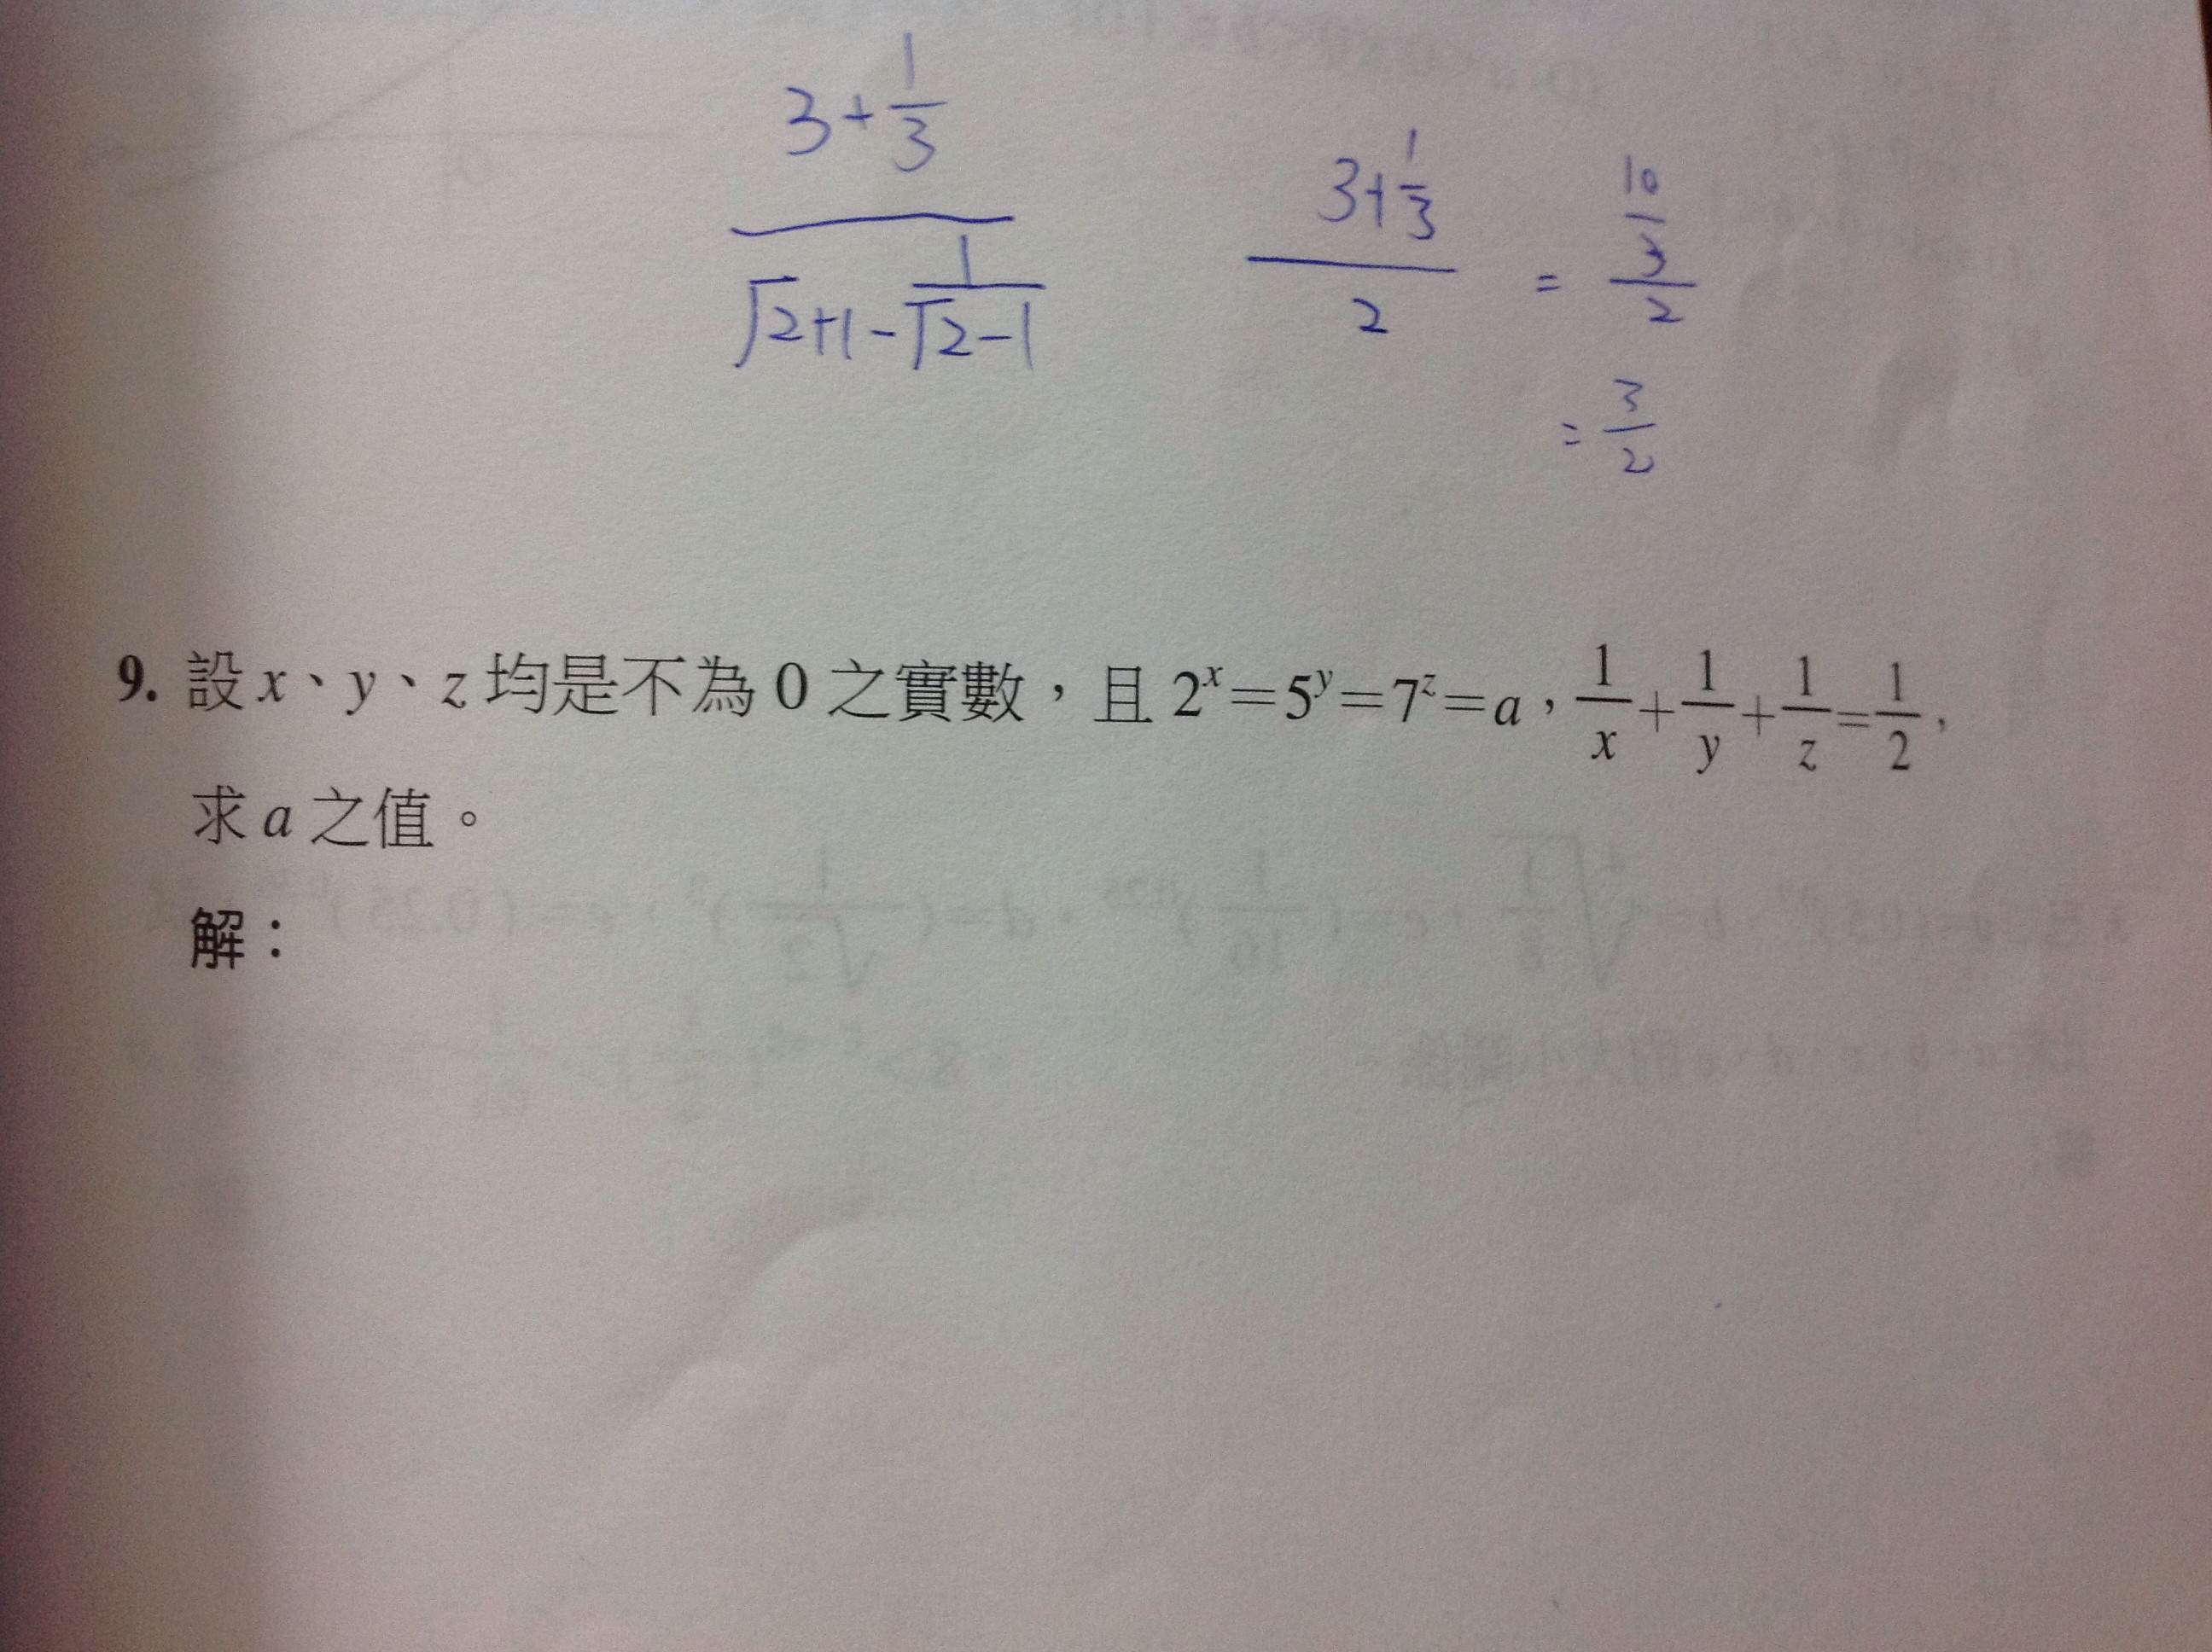 3+1/3
√2+1-1/(√2-1)
3+1/3
2
= 10/3
2
= 3/2
9. 設 x、y、z 均是不為 0 之實數,且 2^x=5^y=7^z=a,1/x+1/y+1/z=1/2,
求 a 之值。
解: